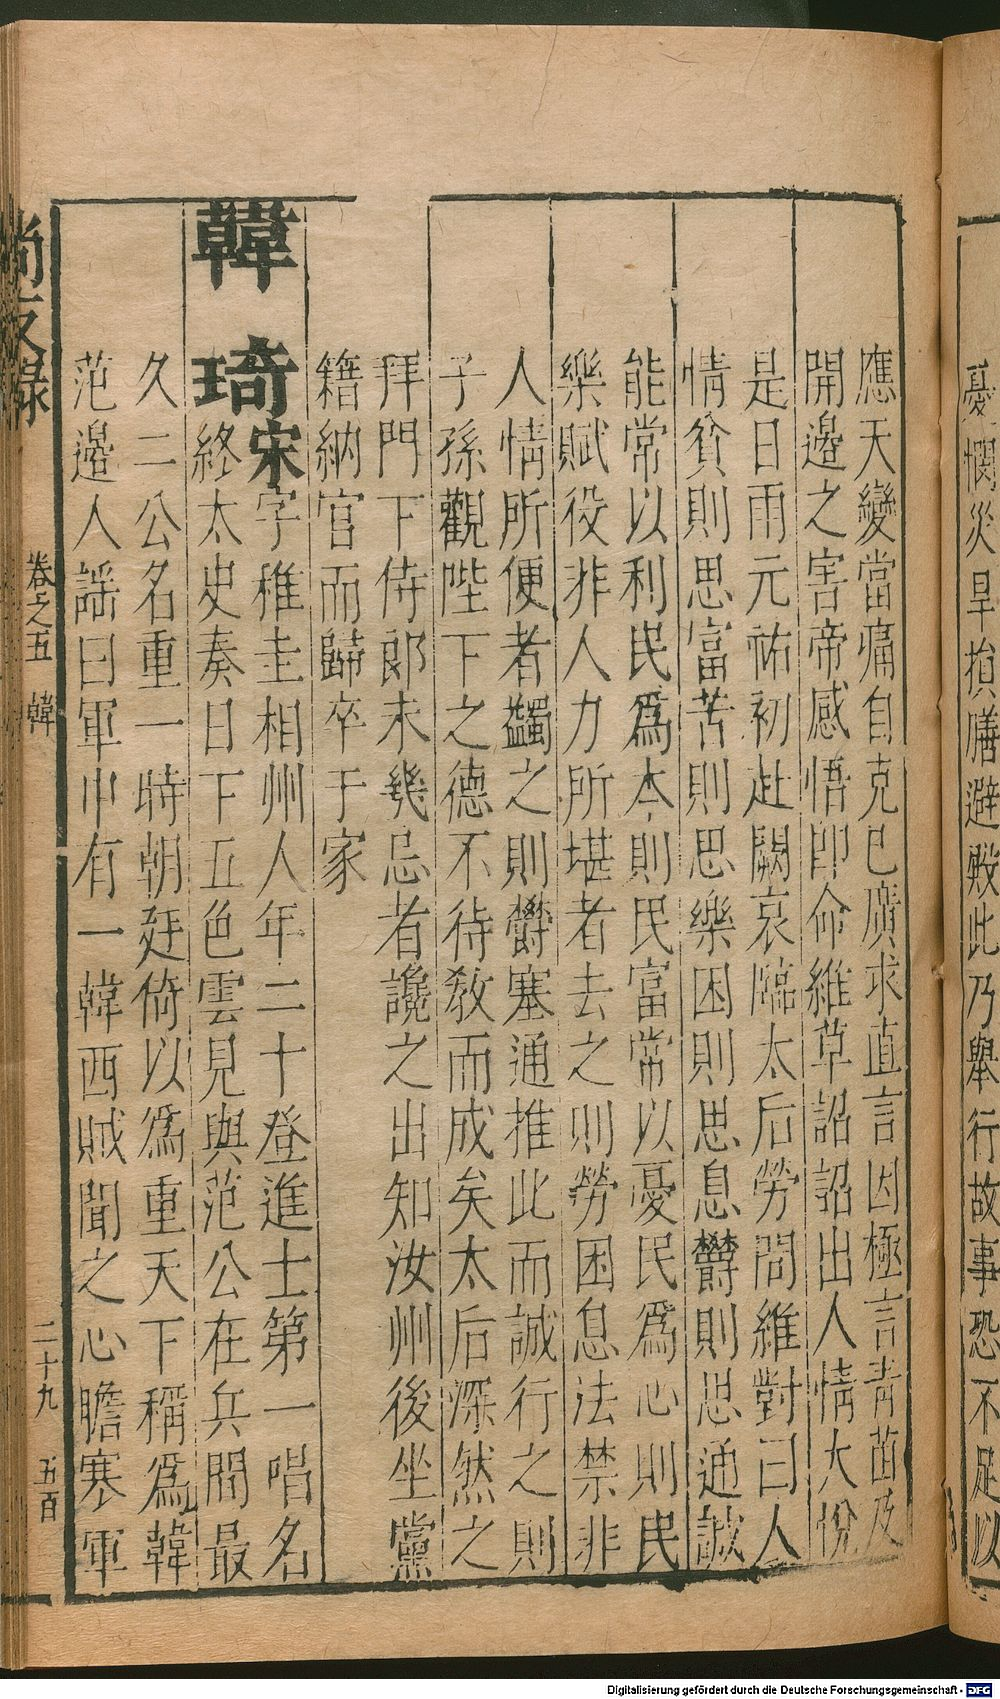 憂憫災旱損膳避殿此乃舉行故事恐不足以
應天變當痛自克己廣求直言因極言青苗及
開邊之害帝感悟即命維草詔詔出人情大悅
是日雨元祐初赴闕哀臨太后勞問維對曰人
情貧則思富苦則思樂困則思息鬱則思通誠
能常以利民爲本則民富常以憂民爲心則民
樂賦役非人力所堪者去之則勞困息法禁非
人情所便者蠲之則鬱塞通推此而誠行之則
子孫觀陛下之德不待敎而成矣太后深然之
拜門下侍郞未幾忌者讒之出知汝州後坐黨
籍納官而歸卒于家
韓琦宋字稚圭相州人年二十登進士第一唱名
終太史奏日下五色雲見與范公在兵間最
久二公名重一時朝廷倚以爲重天下稱爲韓
范邉人謡曰軍中有一韓西賊聞之心膽寒軍
尚友錄 卷之五 韓 二十九 五百
Digitalisierung gefördert durch die Deutsche Forschungsgemeinschaft - DFG